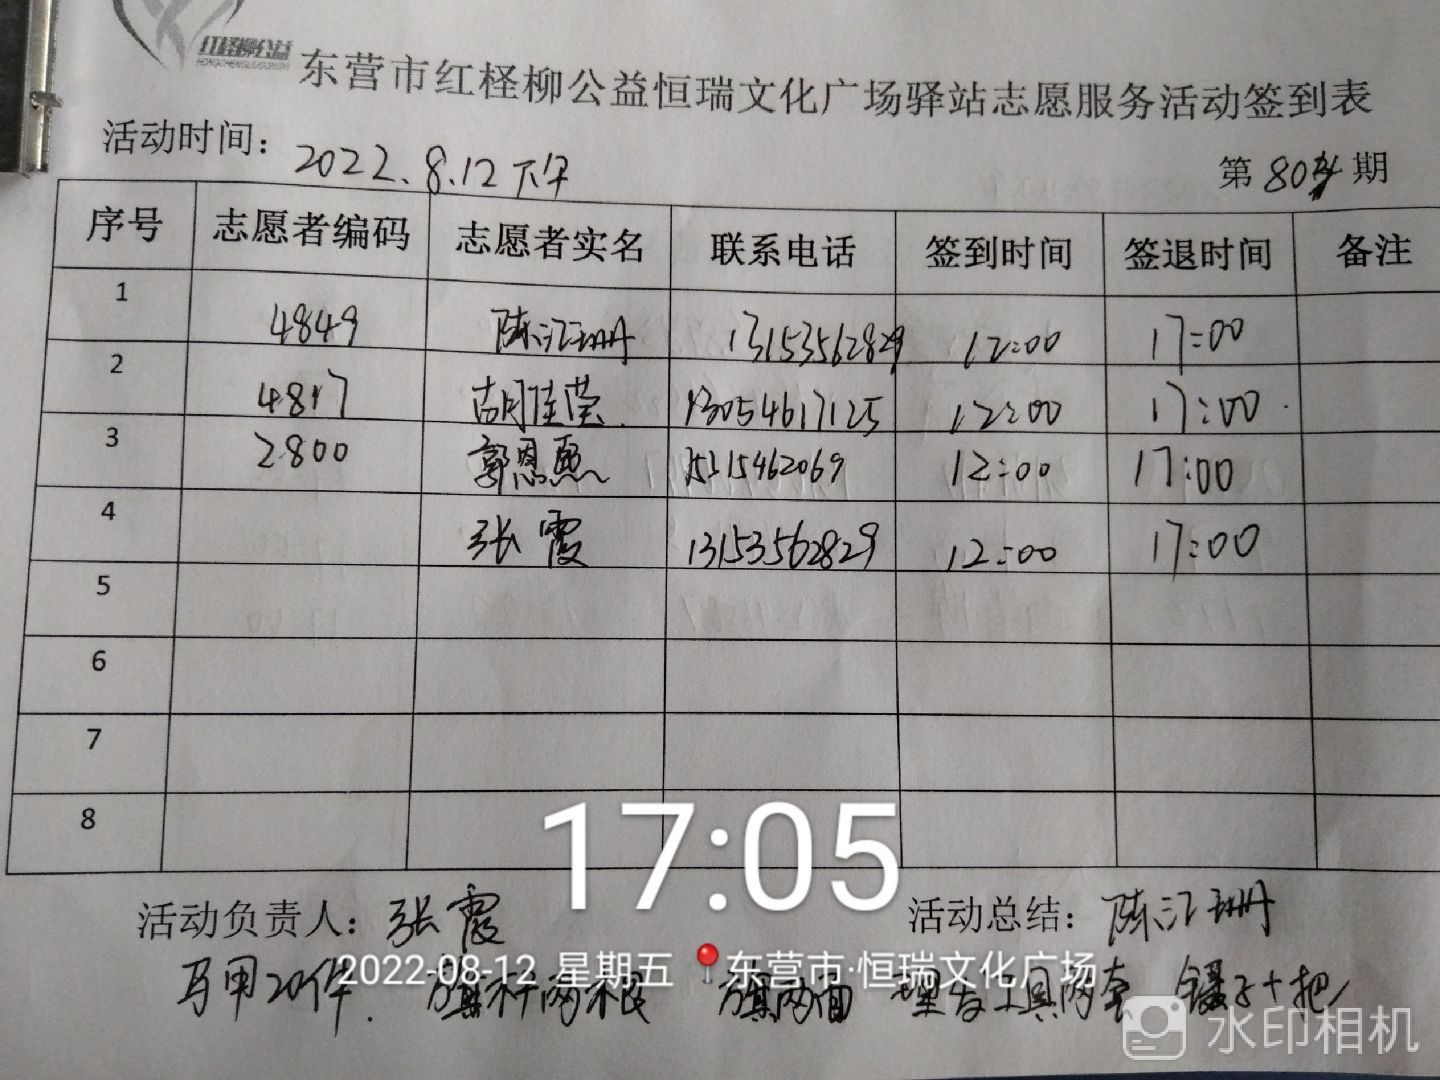 红柽柳公益
东营市红柽柳公益恒瑞文化广场驿站志愿服务活动签到表
活动时间: 2022.8.12下午 第80期
序号 志愿者编码 志愿者实名 联系电话 签到时间 签退时间 备注
1 4849 陈江珊 13153562829 12:00 17:00
2 4817 胡佳莹 13054617125 12:00 17:00
3 2800 郭恩熙 15315462069 12:00 17:00
4 张霞 13153562829 12:00 17:00
5
6
7
8
17:05
活动负责人: 张霞 活动总结: 陈江珊
2022-08-12 星期五 东营市·恒瑞文化广场
马甲20件. 旗杆两根 旗两面 理发工具两套 镊子十把
水印相机